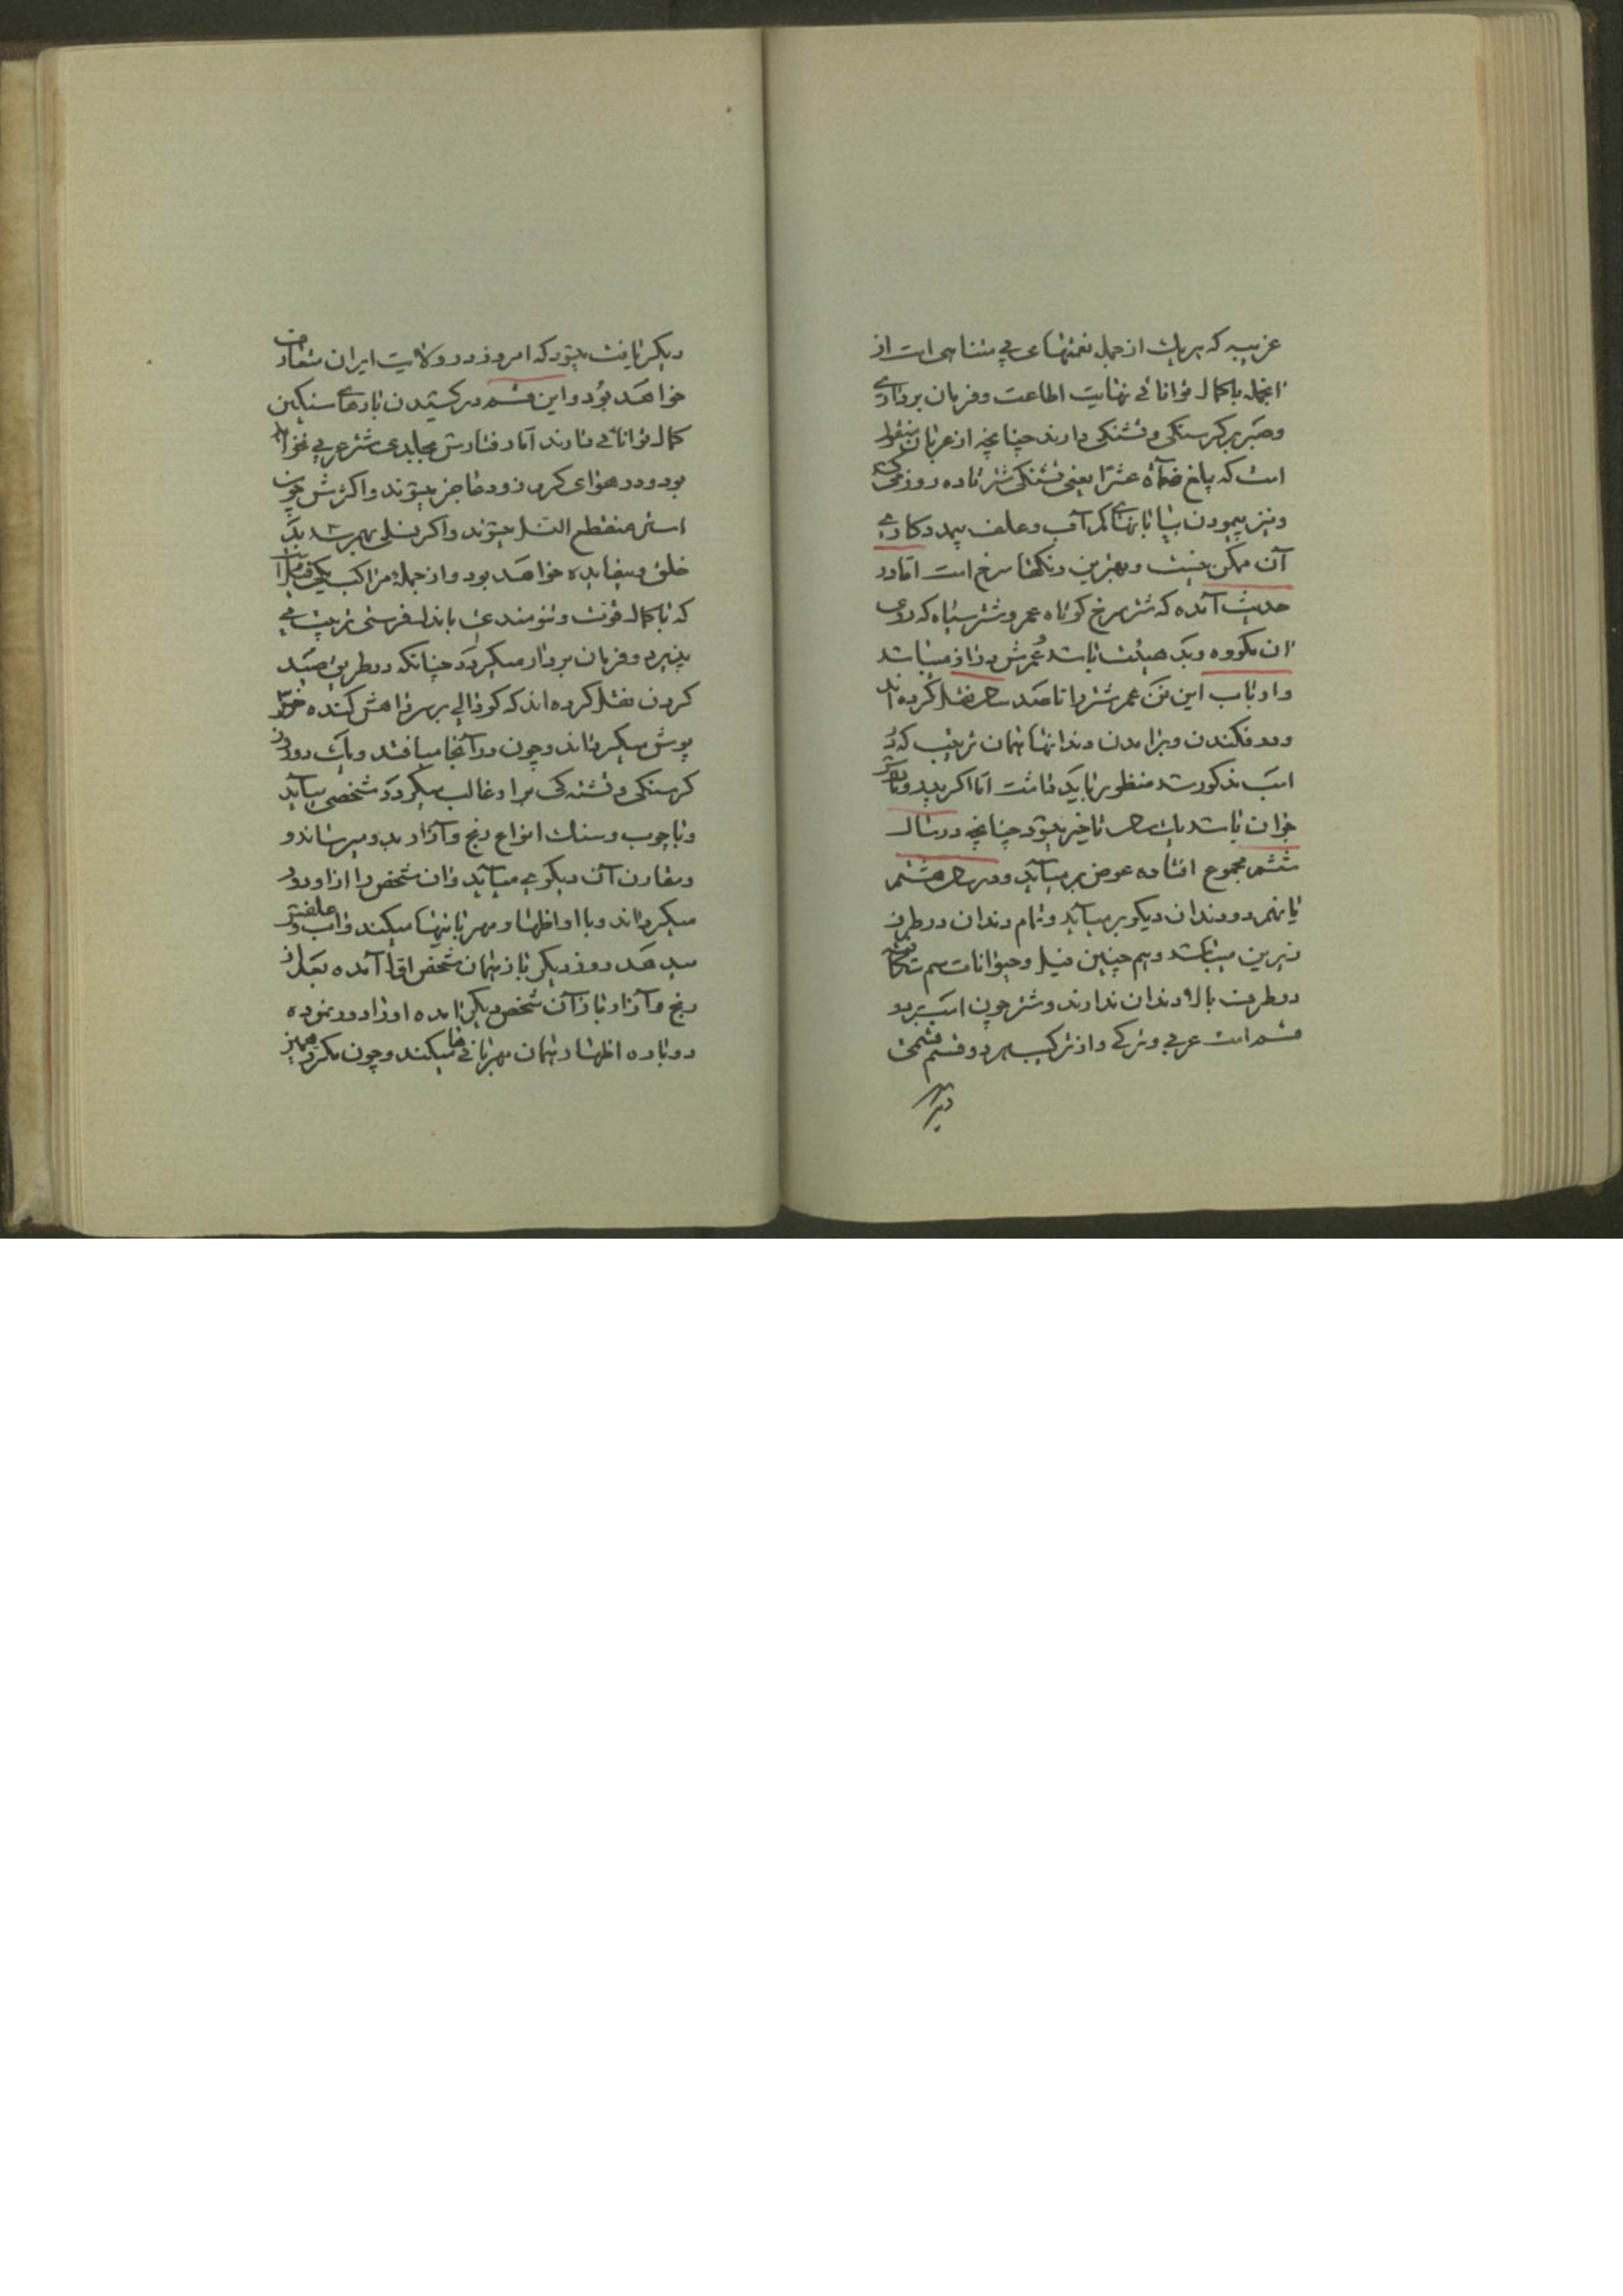 غریبه که هر یک از جمله نعمتهای بی متناهی است از
انجمله با کمال توانائی نهایت اطاعت و فرمان برداری
وصبر بر کرسنکی و تشنکی دارند چنانچه از عربان منقول
است که بلغ ضمآؤه عشرًا یعنی تشنکی شتر تا ده روز
ونیز پیمودن بیابانهای کم آب و علف بیمدد کاری
آن ممکن نیست و بهترین رنکها سرخ است امّا در
حدیث آمده که شتر سرخ کوتاه عمر و شتر سیاه که روی
ان مکروه و بد هیئت باشد عُمرش دراز میباشد
وارباب این فن عمر شتر را تا صد سال نقل کرده اند
ودر فکندن و برامدن دندانها همان ترتیب که در
اسب مذکور شد منظور باید داشت امّا اکر پدر و مادر
جوان باشد یک سال تاخیر میشود چنانچه در سال
ششم مجموع افتاده عوض بر میآید و در سال هشتم
یا نهم دو دندان دیکر بر میآید و تمام دندان در طرف
زیرین میباشد و هم چنین فیل و حیوانات سم شکافته
در طرف بالا دندان ندارند و شتر چون اسب بر دو
قسم است عربی و ترکی و از ترکیب هر دو قسم قسمی
دیکر
دیکر یافت میشود که امروز در ولایت ایران متعارف
خواهد بُود و این قسم در کشیدن بارهای سنکین
کمال توانائی دارند امّا رفتارش بجلدی شتر عربی نخواهد
بود و در هوای کرم زود عاجز میشوند و اکثرش چون
استر منقطع النّسل میشوند و اکر نسلی بهم رسد بد
خلق و بیفایده خواهد بود و از جمله مراکب یکی فیل است
که با کمال قوّت و تنومندی باندک فرصتی تربیت
پذیرد و فرمان بردار میکردد چنانکه در طریق صید
کردن نقل کرده اند که کودالی بر سر راهش کنده خس
پوش میکردانند و چون در آنجا میافتد و یک دو روز
کرسنکی و تشنه کی بر او غالب میکردد شخصی میآید
وبا چوب و سنک انواع رنج و آزار بدو میرساند و
ومقارن آن دیکری میآید و ان شخص را از او دور
میکرداند و با او اظهار مهربانیها میکند و آب و علفش
میدهد روز دیکر باز همان شخص اول آمده بعد از
رنج و آزار باز آن شخص دیکر آمده او را دور نموده
دوباره اظهار همان مهربانی ها میکند و چون مکرر